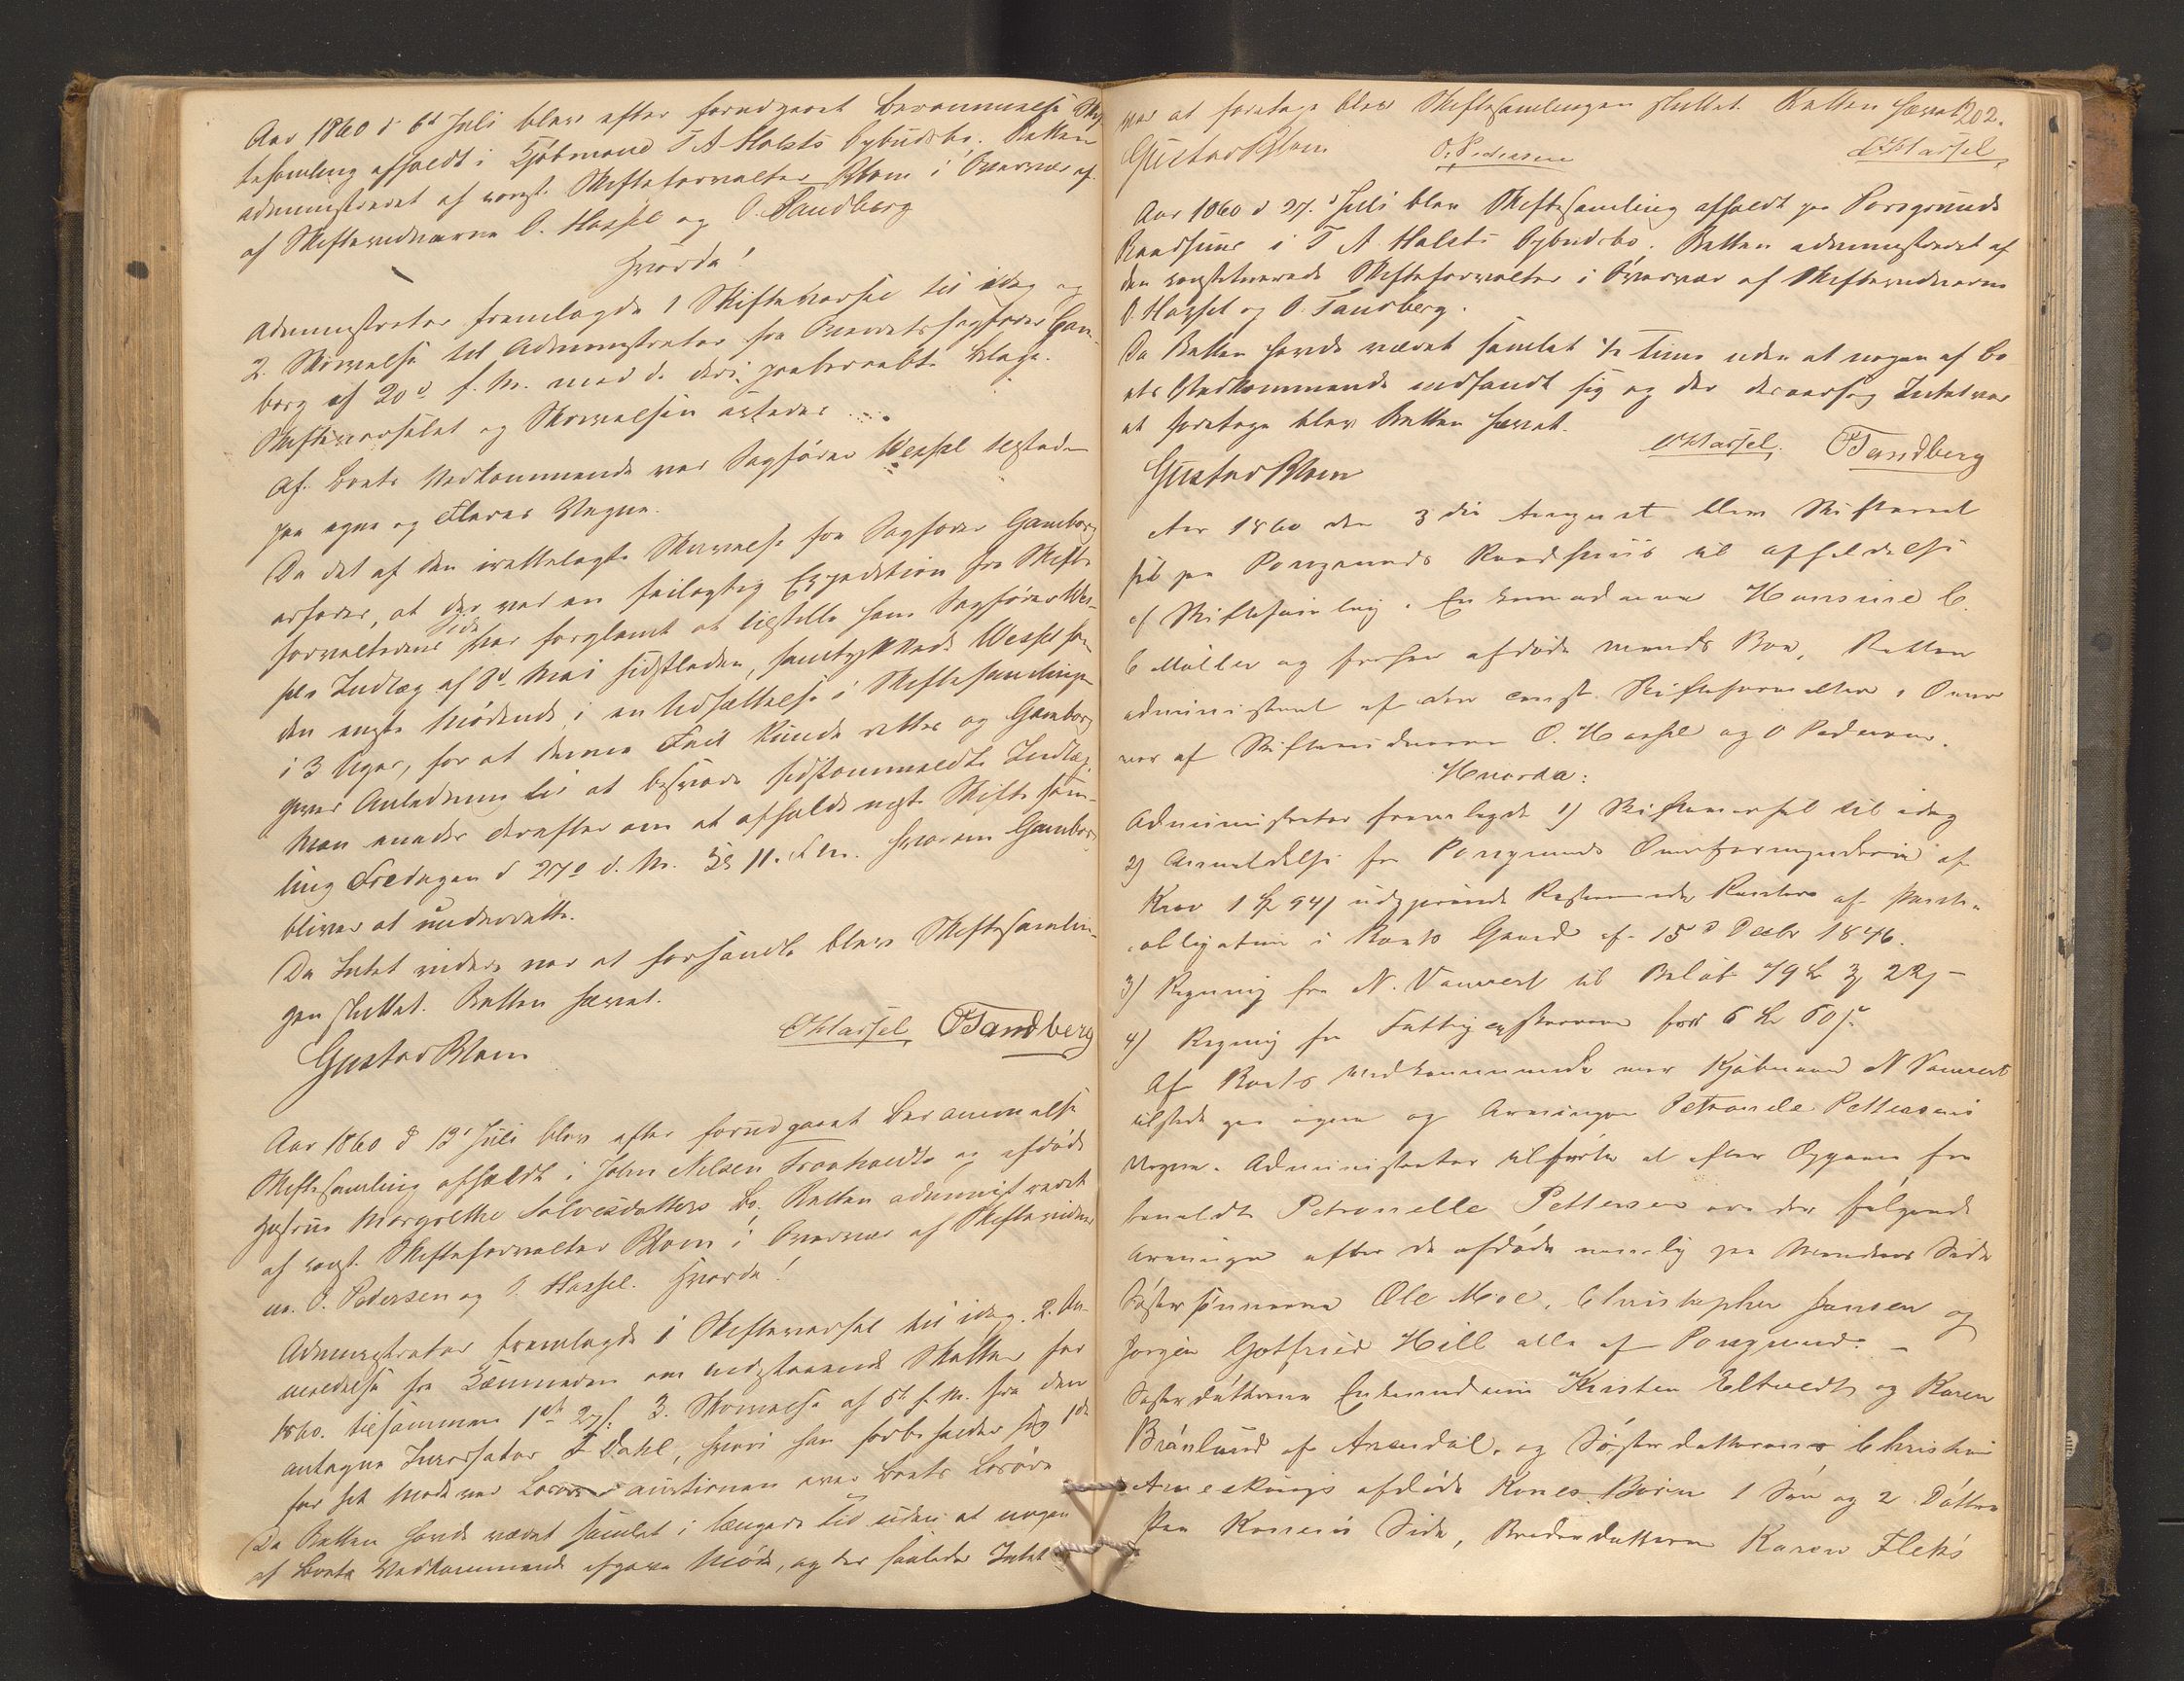 Aar 1860 d 6te Juli blev efter forudgaaet Berammelse Skif-
tesamling afholdt i Kjøbmand T A Holsts Opbudsbo. Retten
administreret af const. Skifteforvalter Blom i Overvær af
af Skiftevidnerne O. Hassel og O. Tandberg
Hvorda!
Administrator fremlagde 1 Skiftevarsel til idag og
2. Skrivelse til Administrator fra Overretssagfører Gam-
borg af 20de f. M. med d. deri paaberaabte Bilage.
Skiftevarselet og Skrivelsen
Af Boets Vedkommende var Sagfører Wessel tilstede
paa egne og Fleres Vegne.
Da det af den irettelagte Skrivelse fra Sagfører Gamborg
erfares, at der ved en feilagtig Expedition fra Skifte
forvalterens Side har forglemt at tilstille ham Sagfører Wes-
sels Indlæg af 8de Mai sidstleden, samtykkede Wessel som
den eneste Mødende i en Udsættelse i Skiftesamlingen
i 3 Uger, for at denne Feil kunde rettes og Gamborg
gives Anledning til at besvare sidstommeldte Indlæg.
Man enedes derefter om at afholde næste Skiftesam-
ling Fredagen d 27de d. M. Kl 11. F.M. hvorom Gamborg
bliver at underrette.
Da Intet videre var at forhandle blev Skiftesamlin-
gen sluttet. Retten hævet.
Gustav Blom OHassel OTandberg
Aar 1860 d 13de Juli blev efter forudgaaet Berammelse
Skiftesamling afholdt i John Nilsen Traaholdts og afdøde
Hustrue Margrethe Solvesdatters Bo. Retten administreret
af const. Skifteforvalter Blom i Overvær af Skiftevidner
ne. O. Pedersen og O. Hassel. Hvorda!
Administrator fremlagde 1 Skiftevarsel til idag. 2. An-
meldelse fra Kæmneren om vedstaaende Skatter for
1860. tilsammen 1 27 s. 3. Skrivelse af 5te f. M. fra den
antagne Incassator F Dahl, hvori han forbeholder sig
for sit Møde ved Auctionen over Boets Løsøre
Da Retten havde været samlet i længere Tid uden at nogen
af Boets Vedkommende afgave Møde, og der saaledes Intet
var at foretage blev Skiftesamlingen sluttet. Retten hævet 202.
Gustav Blom O. Pedersen OHassel
Aar 1860 d 27. Juli blev Skiftesamling afholdt paa Porsgrunds
Raadhuus i T A Holsts Opbudsbo. Retten administreret af
den constituerede Skifteforvalter i Overvær af Skiftevidnerne
O. Hassel og O. Tandberg.
Da Retten havde været samlet 1/2 Time uden at nogen af Bo
ets Vedkommende indfandt sig og der desaarsag Intet var
at foretage blev Retten hævet.
Gustav Blom OHassel. OTandberg
Aar 1860 den 3die August blev Skifteret
sat paa Porsgrunds Raadhuus til Afholdelse
af Skiftesamling i Enkemadame Hansine C.
C Møller og forhen afdøde Mands Boe. Retten
administreret af den const. Skifteforvalter i Over
vær af Skiftevidnerne O. Hassel og O Pedersen.
Hvorda:
Administrator fremlagde 1) Skiftevarsel til idag
2) Anmeldelse fra Porsgrunds Overformynderie af
Krav 1 94 s udgjørende Resterende Renter af Pante-
obligation i Boets Gaard af 15de Decbr 1846.
3) Regning fra N. Vauvert til Beløb 79 3 22 s
4) Regning fra Fattigcassereren for 6 60 s.
Af Boets Vedkommende var Kjøbmand N Vauvert
tilstede paa egne og Arvingen Petronelle Pettersens
Vegne. Administrator tilførte at efter Opgave fra
bemeldte Petronelle Pettersen ere der følgende
Arvinger efter de afdøde nemlig paa Mandens Side
Søstersønnerne Ole Moe, Christopher Jansen og
Jørgen Gotfried Hill alle af Porsgrund. –
Søsterdøttrene Enkemadame Kirsten Eltvedt og Karen
Brønlund af Arendal, og Søsterdatteren Christine
Ameelungs afdøde Kones Børn 1 Søn og 2 Døttre
Paa Konens Side, Broderdatteren Karen Fleks